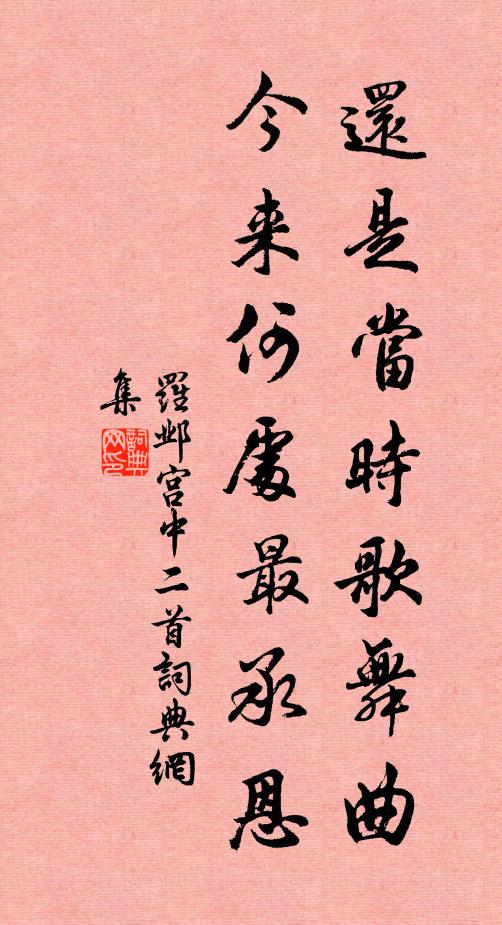 還是當時歌舞曲
今来何處最承恩
羅鄴宫中二首詞典網
集
詞典
网印